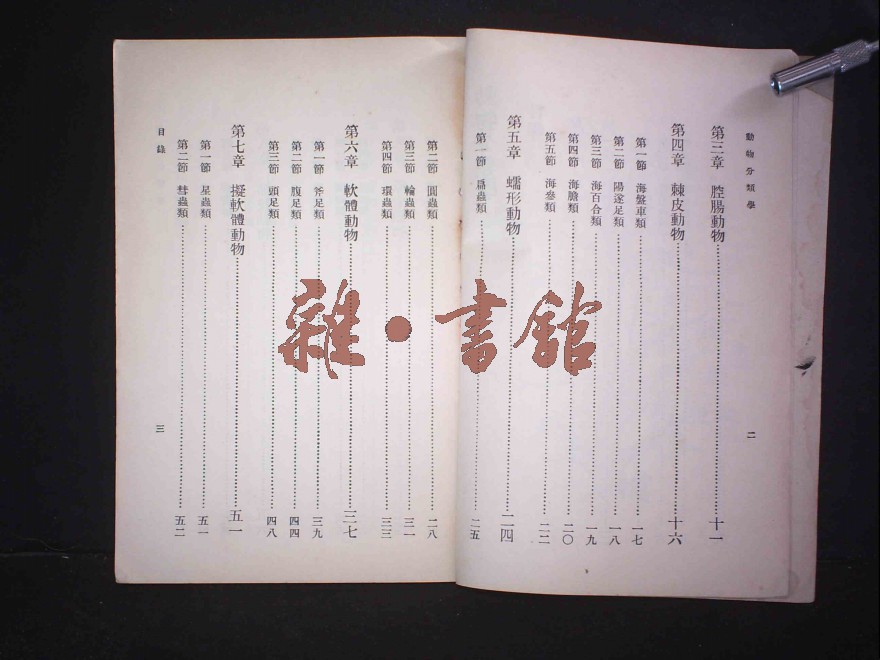 動物分類學
二
第三章 腔腸動物 十一
第四章 棘皮動物 十六
第一節 海盤車類 一七
第二節 陽遂足類 一八
第三節 海百合類 一九
第四節 海膽類 二〇
第五節 海參類 二二
第五章 蠕形動物 二四
第一節 扁蟲類 二五
第二節 圓蟲類 二八
第三節 輪蟲類 三一
第四節 環蟲類 三三
第六章 軟體動物 三七
第一節 斧足類 三九
第二節 腹足類 四四
第三節 頭足類 四八
第七章 擬軟體動物 五一
第一節 星蟲類 五一
第二節 彗蟲類 五二
目錄
三
雜•書館